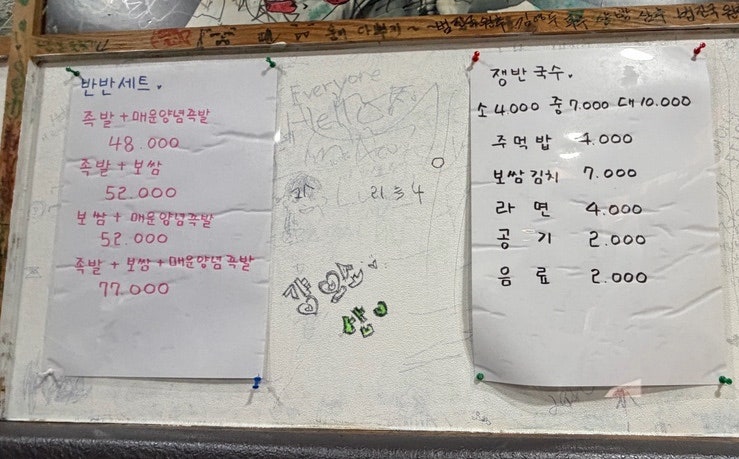 반반세트.
족발 + 매운양념족발
48.000
족발 + 보쌈
52.000
보쌈 + 매운양념족발
52.000
족발 + 보쌈 + 매운양념족발
77.000
Everyone
Hello
쟁반국수.
소 4.000 중 7.000 대 10.000
주먹밥 4.000
보쌈김치 7.000
라면 4.000
공기 2.000
음료 2.000